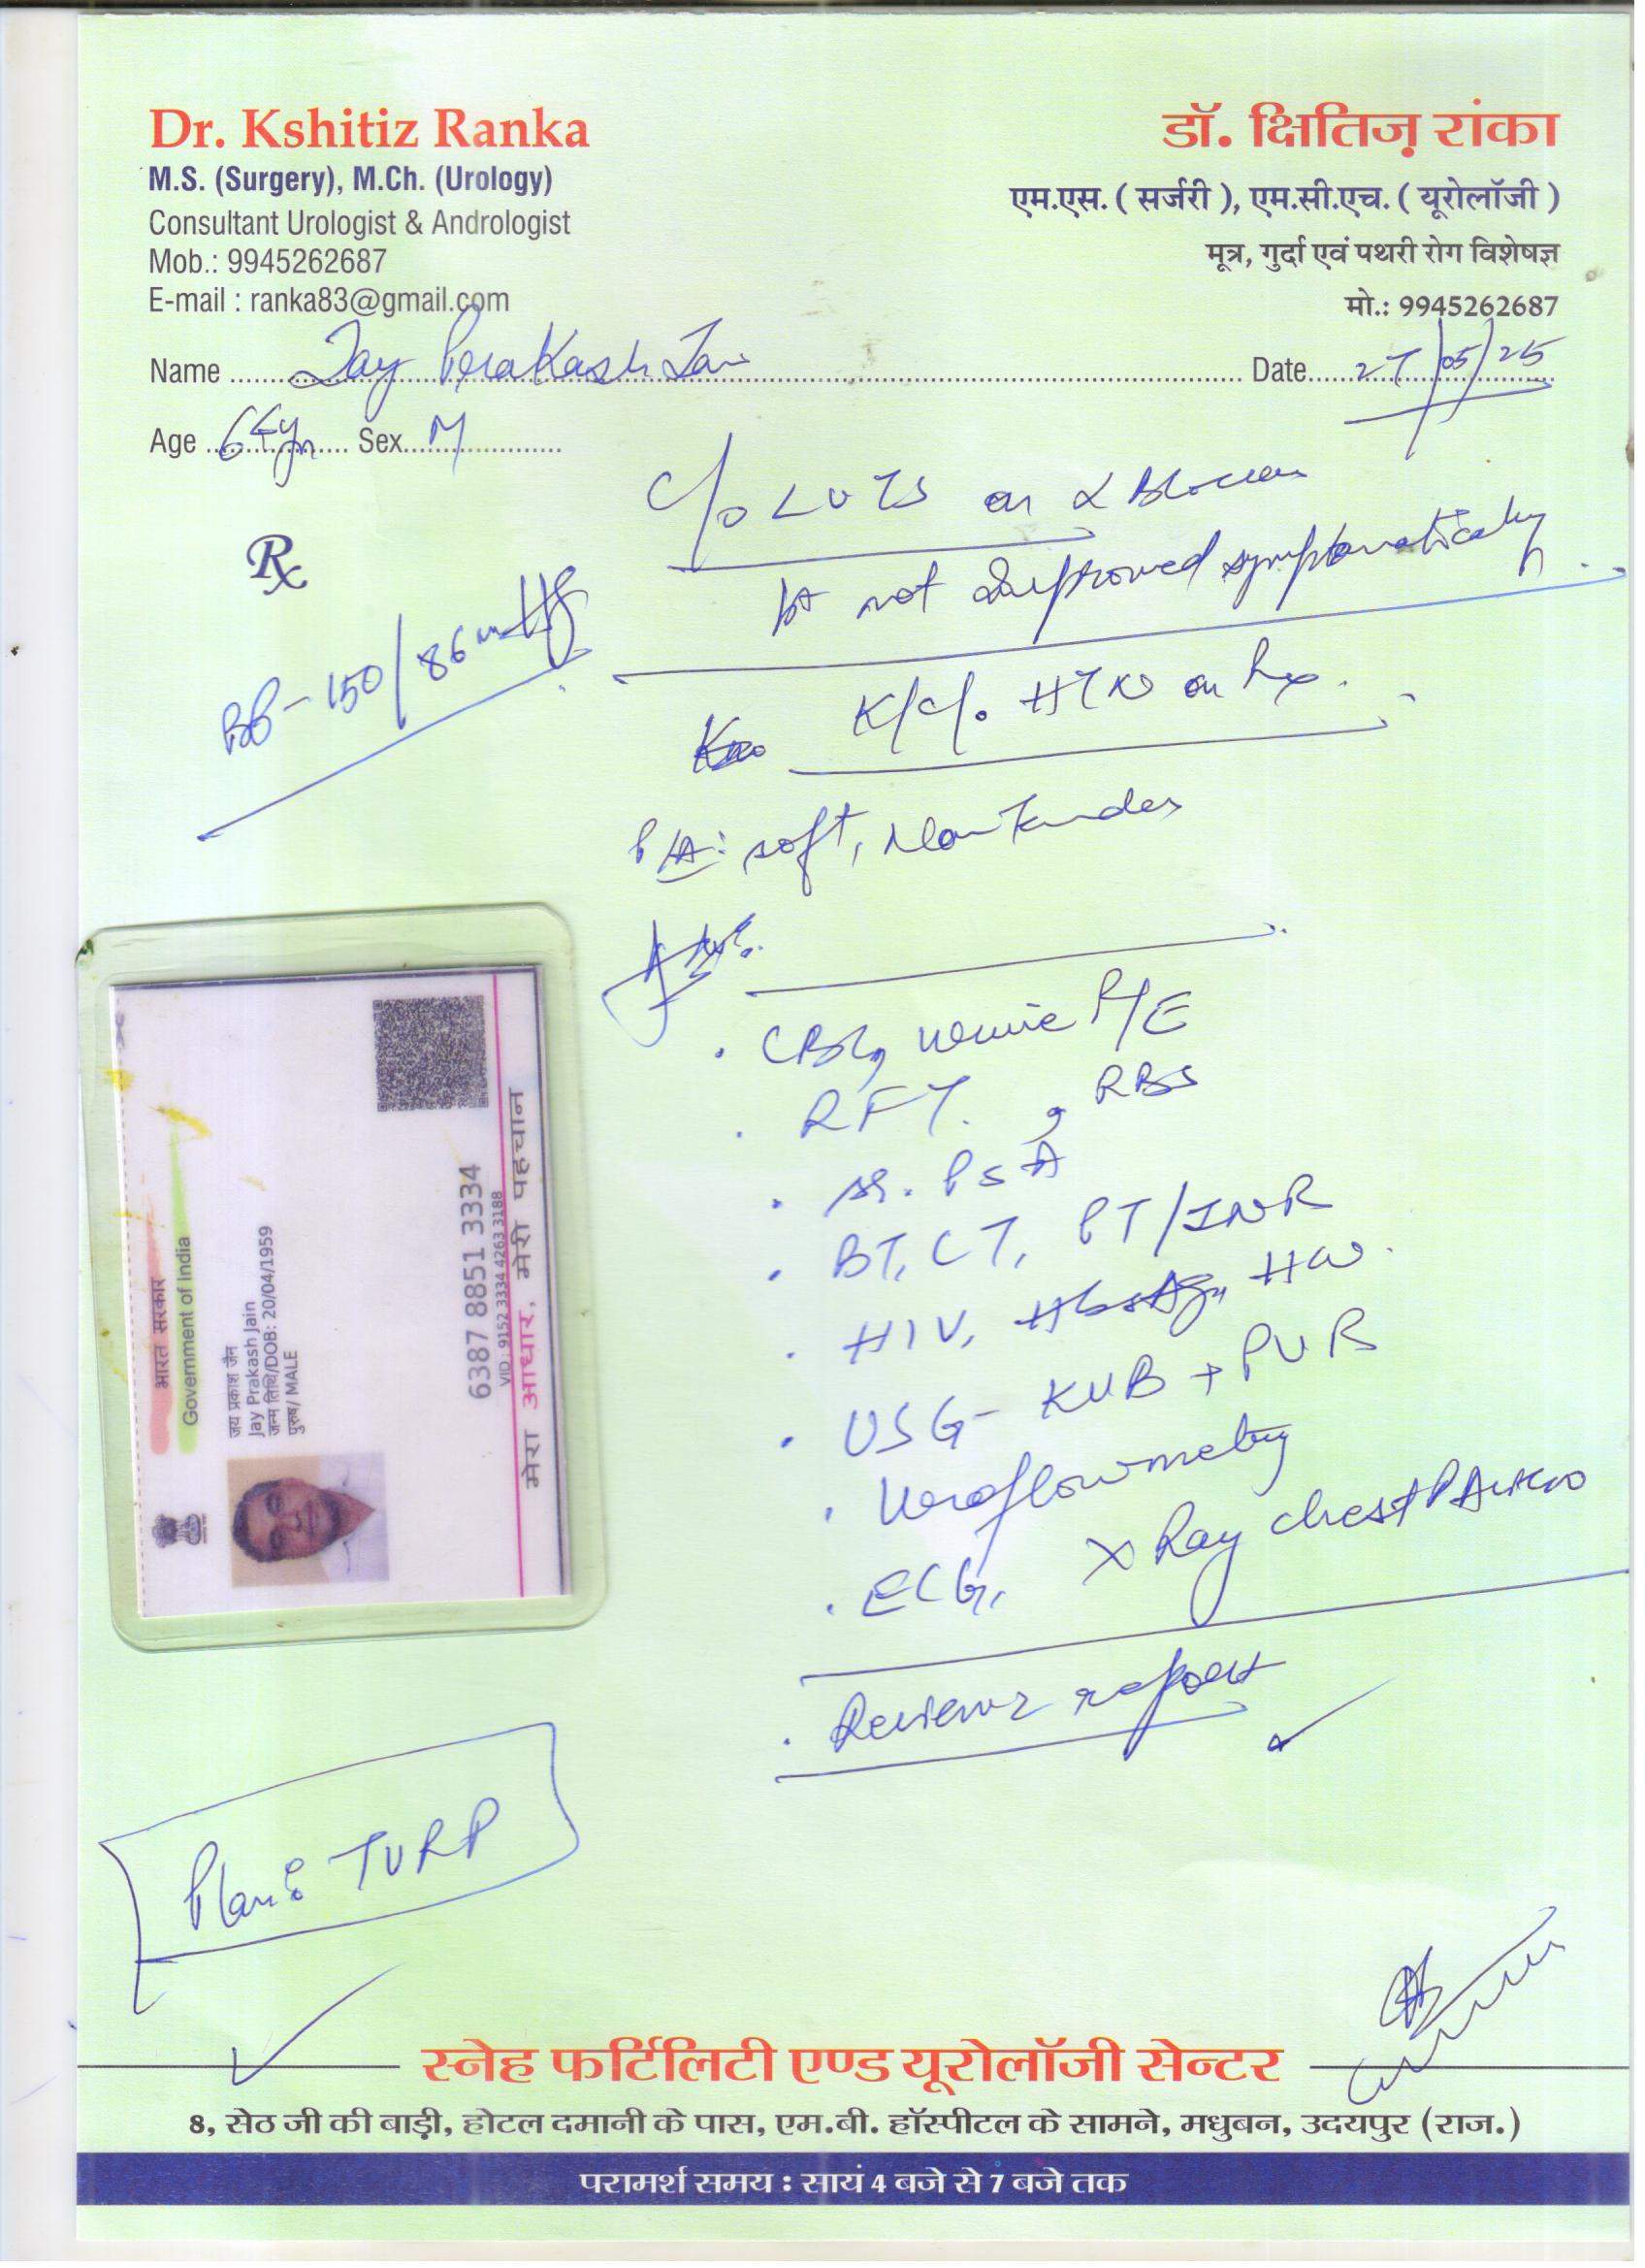 Dr. Kshitiz Ranka
M.S. (Surgery), M.Ch. (Urology)
Consultant Urologist & Andrologist
Mob.: 9945262687
E-mail : ranka83@gmail.com
डॉ. क्षितिज़ रांका
एम.एस. ( सर्जरी ), एम.सी.एच. ( यूरोलॉजी )
मूत्र, गुर्दा एवं पथरी रोग विशेषज्ञ
मो.: 9945262687
Name Jay Prakash Jain Date 27/05/25
Age Sex M
C/o LUTS on α Blocker
Pt not improved symptomatically
Rx
BP - 150/86 mmHg
K/c/o HTN on Rx.
P/A: soft, Non Tender
Adv.
. CBC, Urine R/E
. RFT, RBS
. Sr. PSA
. BT, CT, PT/INR
. HIV, HbsAg, HCV.
. USG - KUB + PVR
. Uroflowmetry
. ECG, X Ray chest PA view
. Review report
भारत सरकार
Government of India
जय प्रकाश जैन
Jay Prakash Jain
जन्म तिथि/DOB: 20/04/1959
पुरुष/ MALE
6387 8851 3334
VID : 9152 3334 4263 3188
मेरा आधार, मेरी पहचान
Plan: TURP
स्नेह फर्टिलिटी एण्ड यूरोलॉजी सेन्टर
8, सेठ जी की बाड़ी, होटल दमानी के पास, एम.बी. हॉस्पीटल के सामने, मधुबन, उदयपुर (राज.)
परामर्श समय : सायं 4 बजे से 7 बजे तक